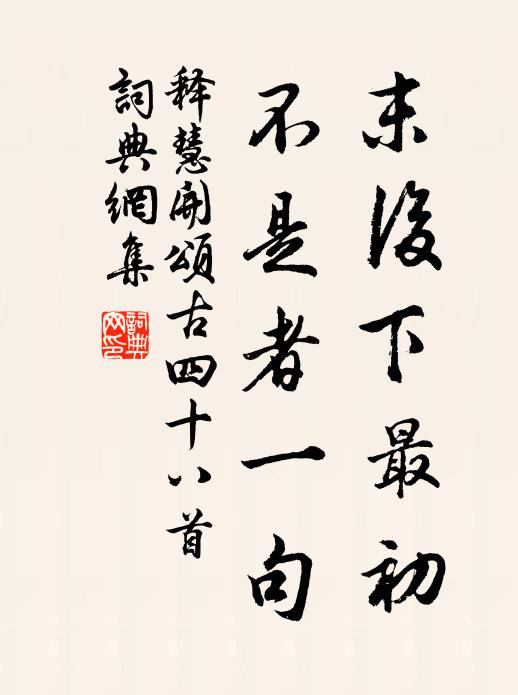 末後下最初
不是者一句
释慧開頌古四十八首
詞典網集
詞典網印